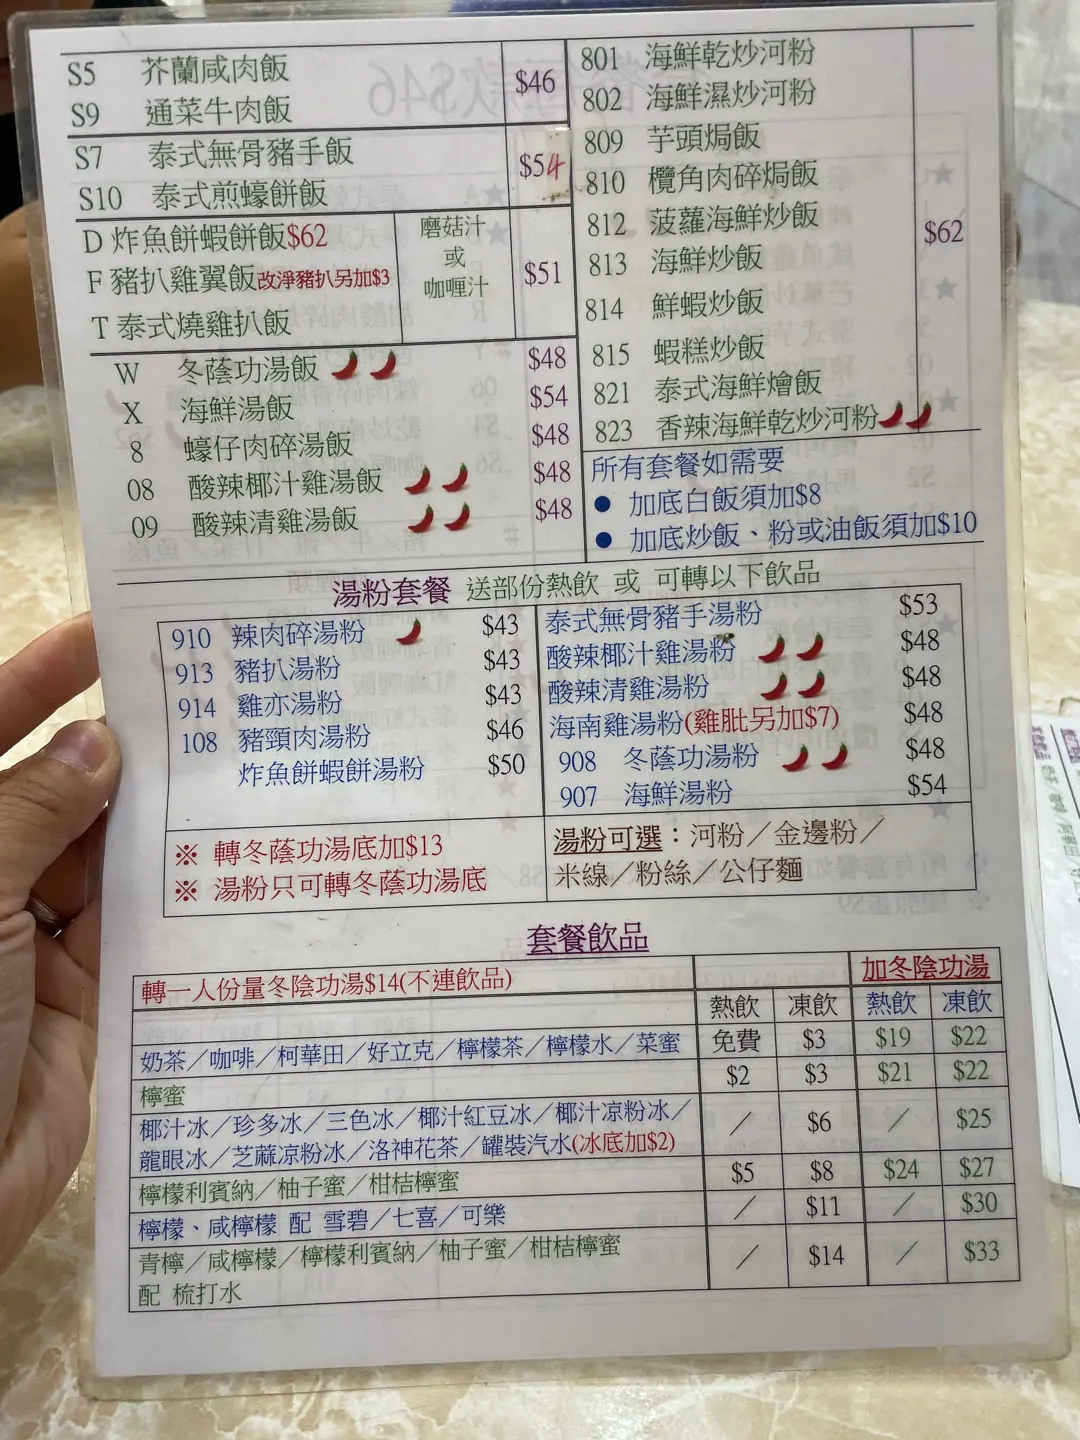 S5 芥蘭咸肉飯
S9 通菜牛肉飯
$46
S7 泰式無骨豬手飯
S10 泰式煎蠔餅飯
$54
D 炸魚餅蝦餅飯$62
F 豬扒雞翼飯改淨豬扒另加$3
T 泰式燒雞扒飯
磨菇汁
或
咖喱汁
$51
W 冬蔭功湯飯 $48
X 海鮮湯飯 $54
8 蠔仔肉碎湯飯 $48
08 酸辣椰汁雞湯飯 $48
09 酸辣清雞湯飯 $48
801 海鮮乾炒河粉
802 海鮮濕炒河粉
809 芋頭焗飯
810 欖角肉碎焗飯
812 菠蘿海鮮炒飯
813 海鮮炒飯
814 鮮蝦炒飯
815 蝦糕炒飯
821 泰式海鮮燴飯
823 香辣海鮮乾炒河粉
$62
所有套餐如需要
● 加底白飯須加$8
● 加底炒飯、粉或油飯須加$10
湯粉套餐 送部份熱飲 或 可轉以下飲品
910 辣肉碎湯粉 $43
913 豬扒湯粉 $43
914 雞亦湯粉 $43
108 豬頸肉湯粉 $46
炸魚餅蝦餅湯粉 $50
泰式無骨豬手湯粉 $53
酸辣椰汁雞湯粉 $48
酸辣清雞湯粉 $48
海南雞湯粉(雞肶另加$7) $48
908 冬蔭功湯粉 $48
907 海鮮湯粉 $54
※ 轉冬蔭功湯底加$13
※ 湯粉只可轉冬蔭功湯底
湯粉可選：河粉／金邊粉／
米線／粉絲／公仔麵
套餐飲品
轉一人份量冬陰功湯$14(不連飲品) 加冬陰功湯
熱飲 凍飲 熱飲 凍飲
奶茶／咖啡／柯華田／好立克／檸檬茶／檸檬水／菜蜜 免費 $3 $19 $22
檸蜜 $2 $3 $21 $22
椰汁冰／珍多冰／三色冰／椰汁紅豆冰／椰汁凉粉冰／
龍眼冰／芝蔴凉粉冰／洛神花茶／罐裝汽水(冰底加$2) ／ $6 ／ $25
檸檬利賓納／柚子蜜／柑桔檸蜜 $5 $8 $24 $27
檸檬、咸檸檬 配 雪碧／七喜／可樂 ／ $11 ／ $30
青檸／咸檸檬／檸檬利賓納／柚子蜜／柑桔檸蜜
配 梳打水 ／ $14 ／ $33